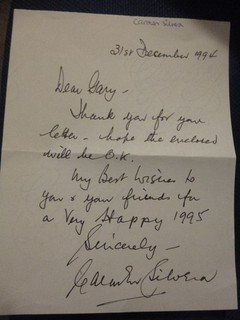 Carmen Silvera
31st December 1994
Dear Gary -
Thank you for your
letter - hope the enclosed
will be O.K.
My Best Wishes to
you & your friends for
a Very Happy 1995
Sincerely -
Carmen Silvera